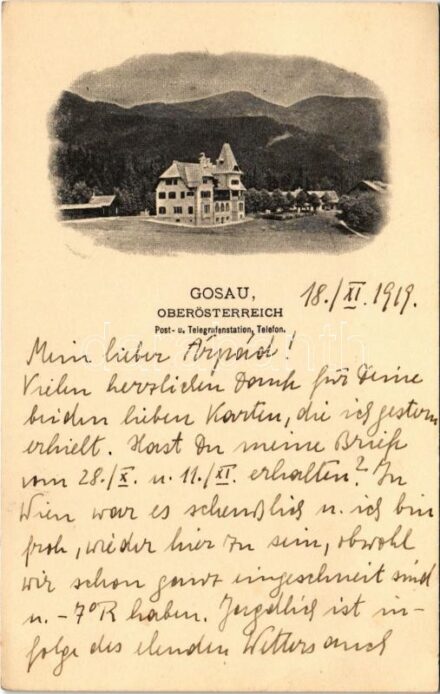 GOSAU,
OBERÖSTERREICH
Post- u. Telegrafenstation, Telefon.
18./XI. 1919.
Mein lieber Árpád!
Vielen herzlichen Dank für Deine
beiden lieben Karten, die ich gestern
erhielt. Hast Du meine Briefe
vom 28./X. u. 11./XI. erhalten? In
Wien war es scheußlich u. ich bin
froh, wieder hier zu sein, obwohl
wir schon ganz eingeschneit sind
u. -7°R haben. Jagdlich ist in-
folge des elenden Wetters auch